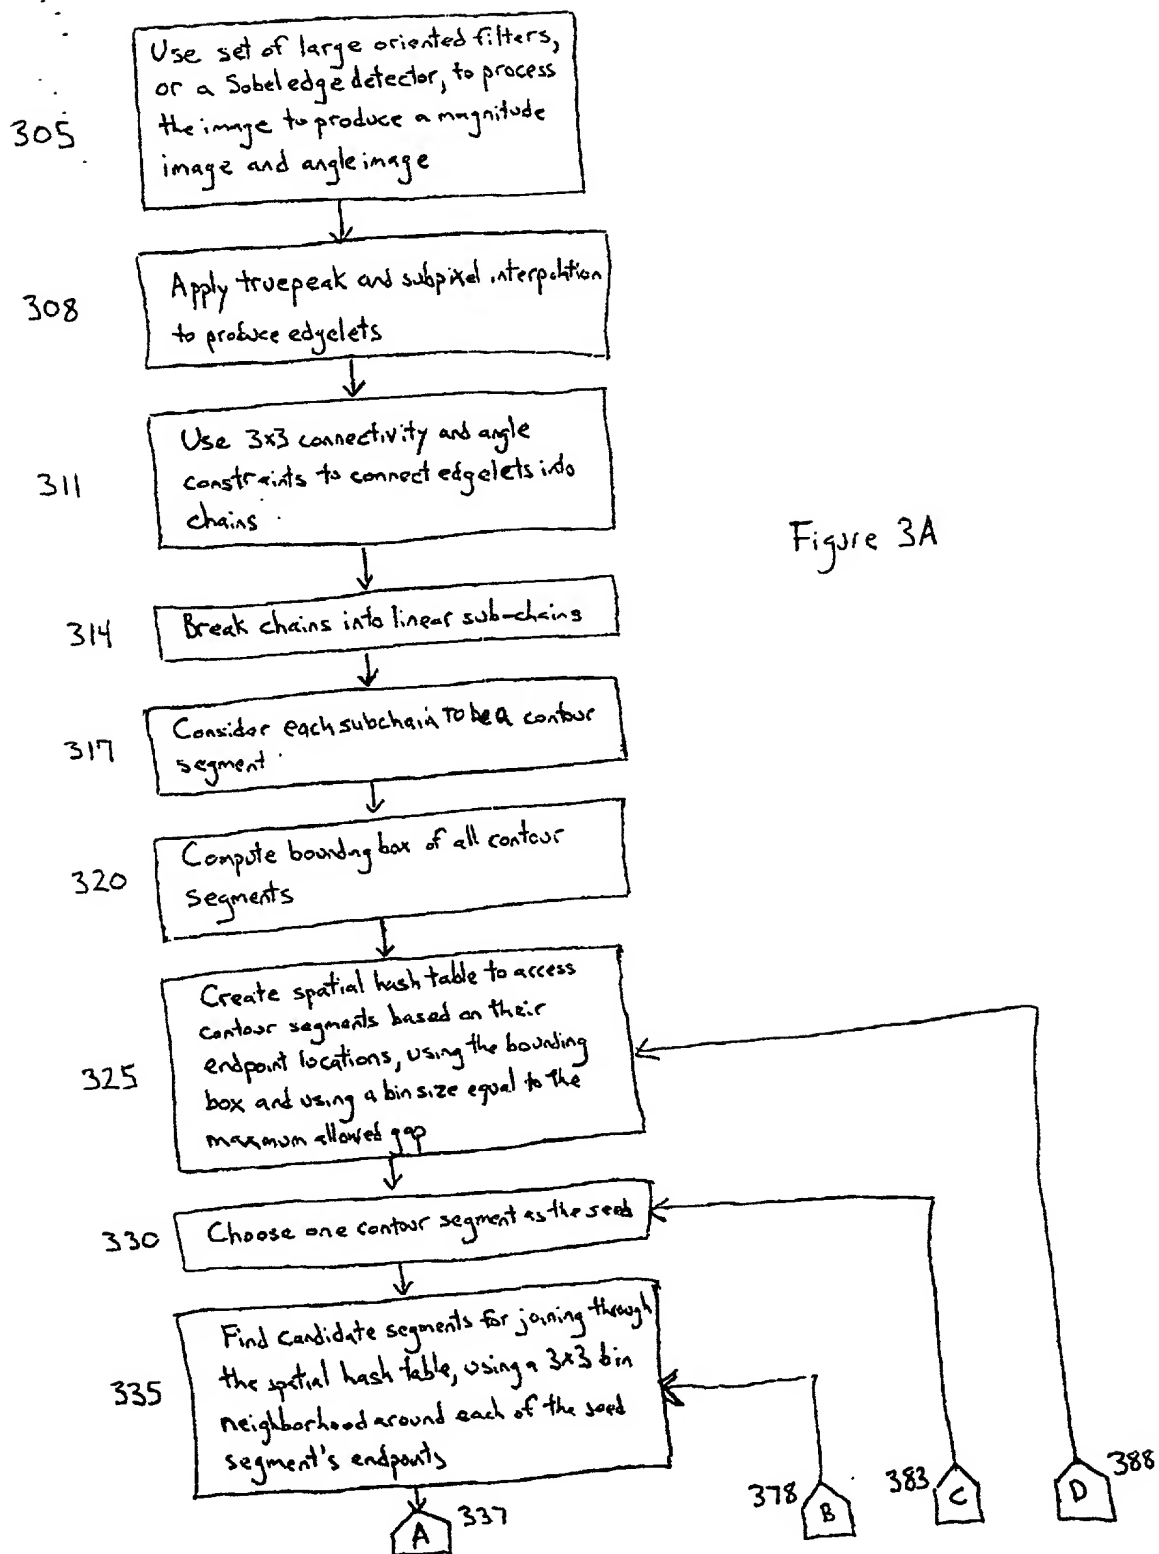 Use set of large oriented filters,
or a Sobel edge detector, to process
the image to produce a magnitude
image and angle image
305
Apply truepeak and subpixel interpolation
to produce edgelets
308
Use 3x3 connectivity and angle
constraints to connect edgelets into
chains
311
Figure 3A
Break chains into linear sub-chains
314
Consider each subchain to be a contour
segment
317
Compute bounding box of all contour
segments
320
Create spatial hash table to access
contour segments based on their
endpoint locations, using the bounding
box and using a bin size equal to the
maximum allowed gap
325
Choose one contour segment as the seed
330
Find candidate segments for joining through
the spatial hash table, using a 3x3 bin
neighborhood around each of the seed
segment's endpoints
335
A 337
378 B
383 C
D 388